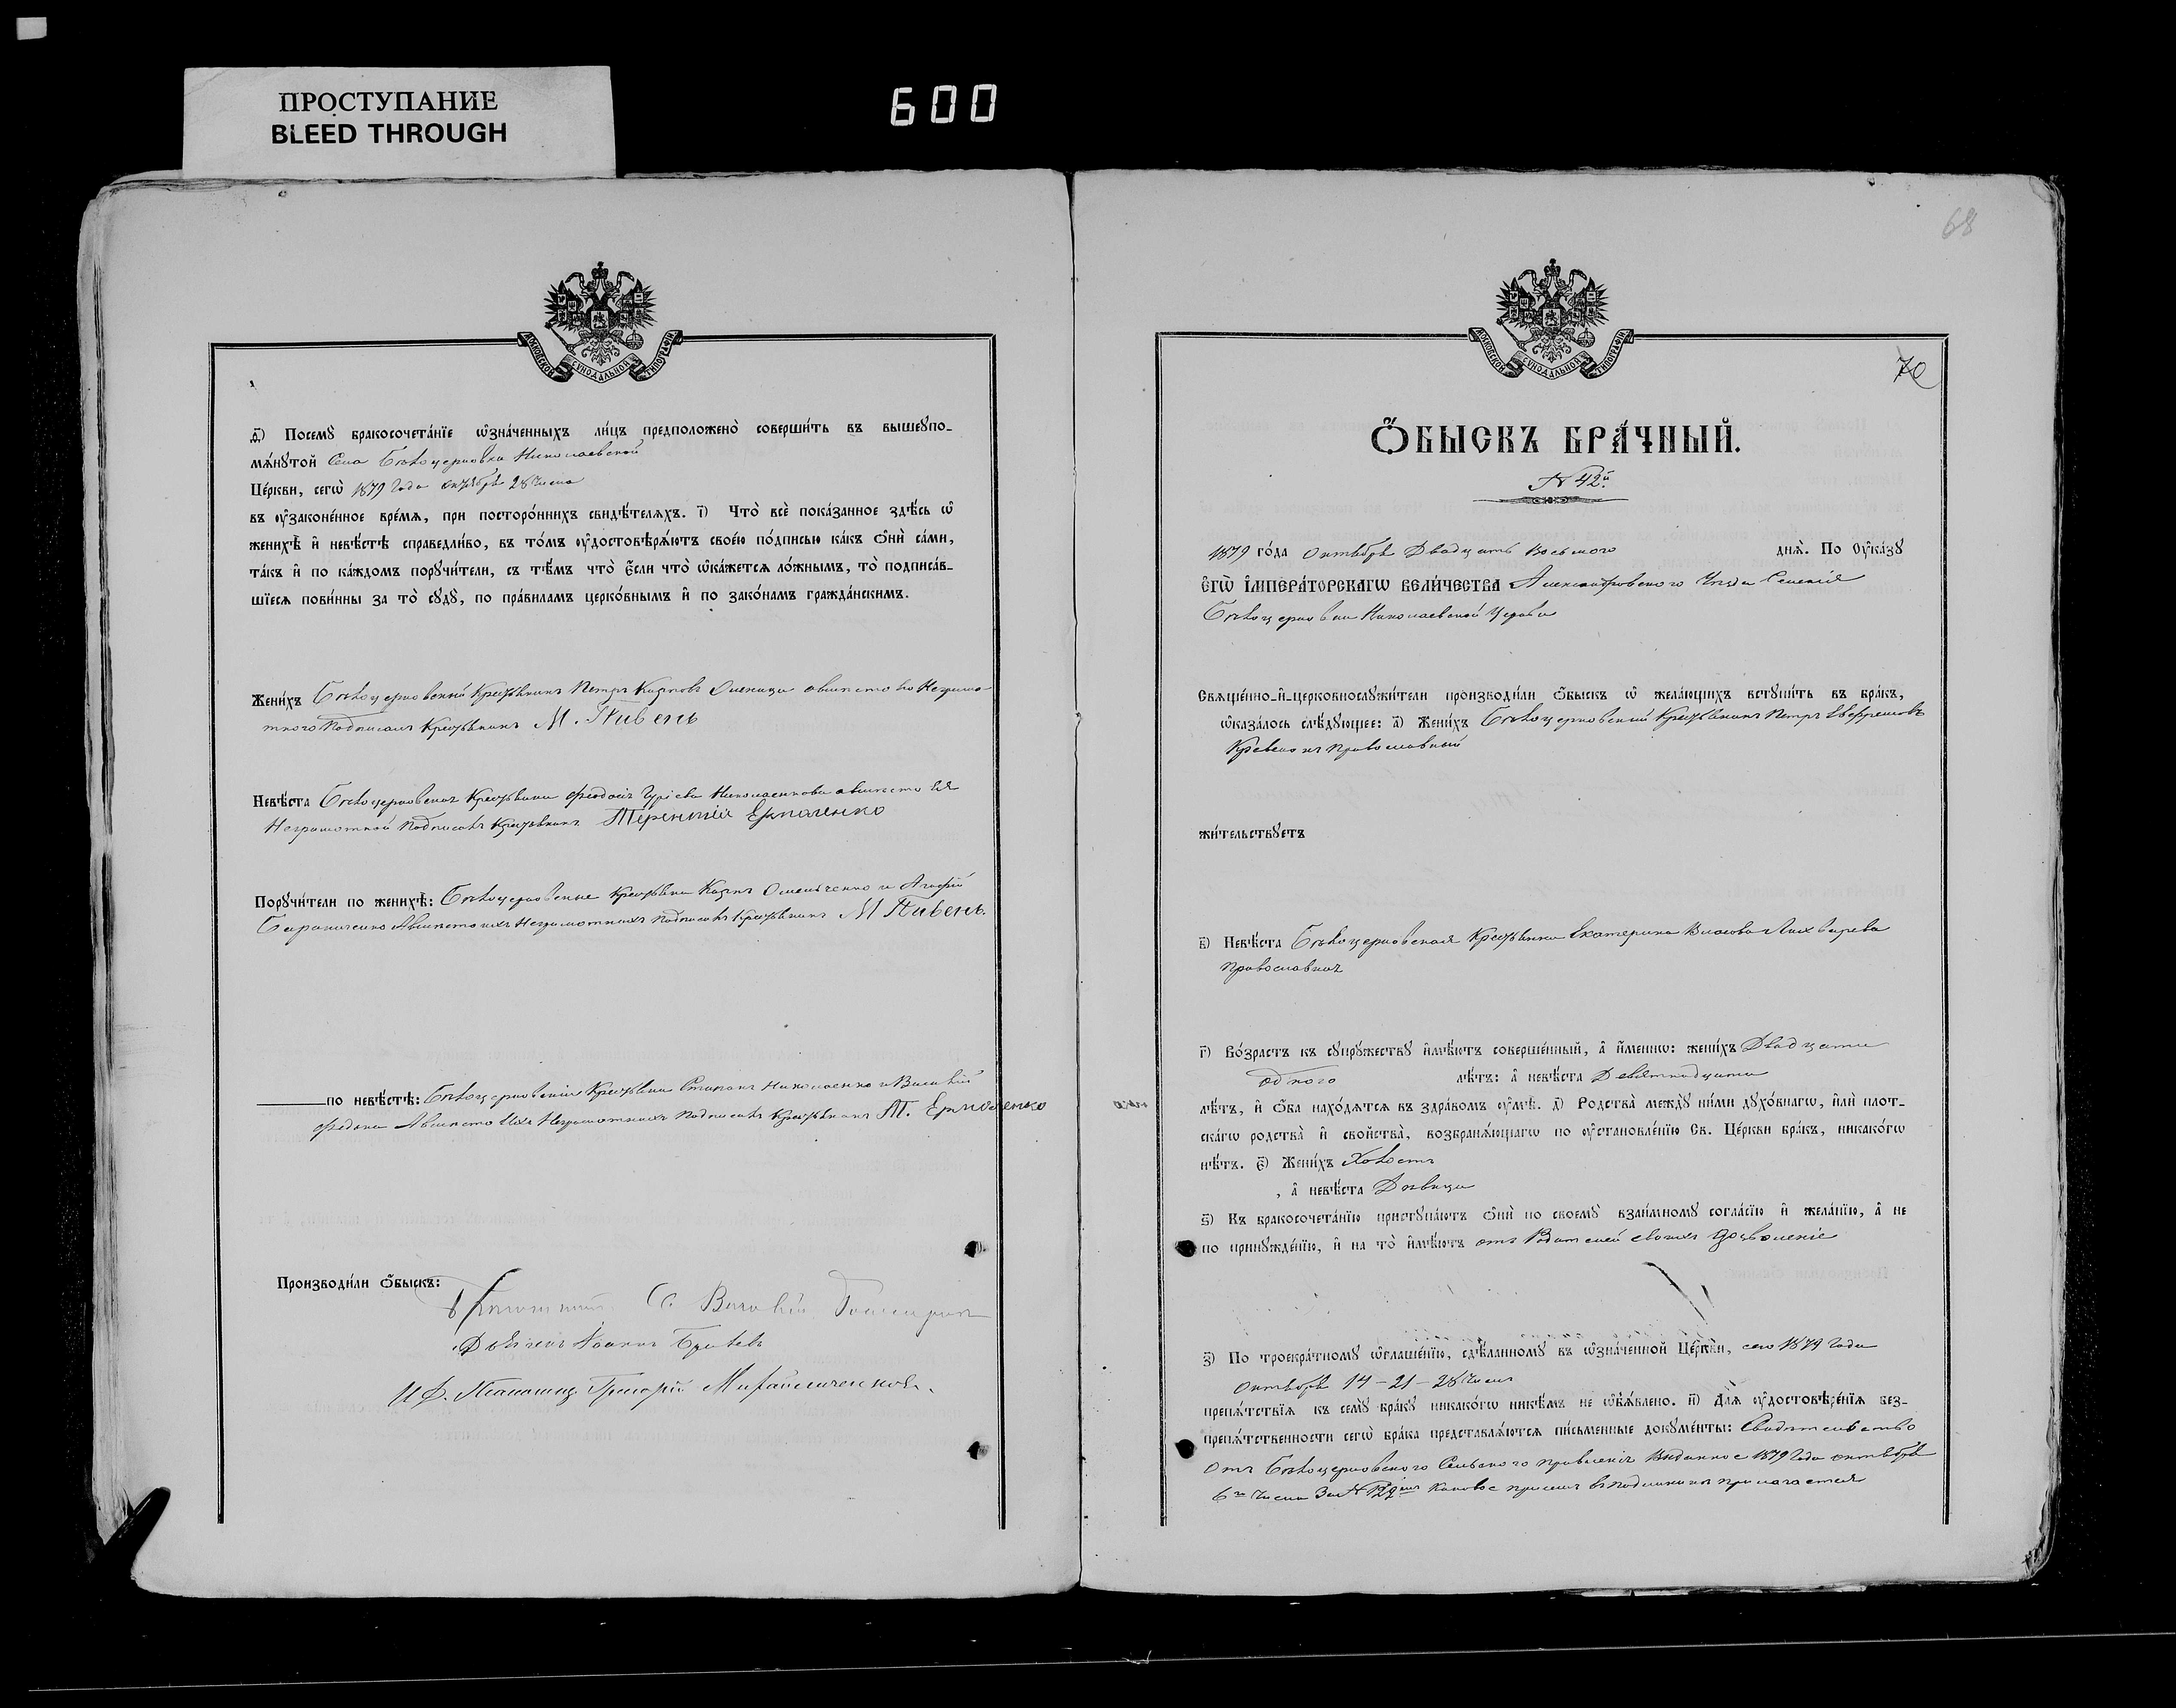 ПРОСТУПАНИЕ
BLEED THROUGH
600
МОСКОВСКОЙ СѴНОДАЛЬНОЙ ТИПОГРАФІИ
д҃і) Посемꙋ̀ бракосочета́нїе ѡ҆зна́ченныхъ ли́цъ предположено̀ соверши́ть въ вышеꙋпо-
мѧ́нꙋтой Села Бѣлоцерковка Николаевской
Це́ркви, сегѡ̀ 1879 Года октября 28 числа
въ ᲂу҆законе́нное вре́мѧ, при посторо́ннихъ свидѣ́телѧхъ. і҃) Что̀ всѐ пока́занное здѣ́сь ѡ҆
женихѣ̀ и҆ невѣ́стѣ справедли́во, въ то́мъ ᲂу҆достовѣрѧ́ютъ свое́ю по́дписью ка́къ ѻ҆нѝ са́ми,
та́къ и҆ по ка́ждомъ порꙋчи́тели, съ тѣ́мъ что̀ є҆́сли что̀ ѡ҆ка́жетсѧ ло́жнымъ, то̀ подписа́в-
шїесѧ пови́нны за то̀ сꙋдꙋ̀, по пра́виламъ церко́внымъ и҆ по зако́намъ гражда́нскимъ.
Жени́хъ Бѣлоцерковскій Крестьянинъ Петръ Карповъ а вместо его Неграмо-
тного Подписалъ Крестьянинъ М. Пивень
Невѣ́ста Бѣлоцерковская Крестьянка Феодосія Гуріева Николаенкова а вместо ея
Неграмотной Подписалъ Крестьянинъ Терентій Ермоленко
Порꙋчи́тели по женихѣ̀: Бѣлоцерковские Крестьяне Карпъ Омельченко и
Авместо ихъ Неграмотныхъ Подписалъ Крестьянинъ М Пивень.
по невѣ́стѣ: Бѣлоцерковскіе Крестьяне Степанъ Николаенко и Василій
Авместо Ихъ Неграмотныхъ Подписалъ Крестьянинъ Т. Ермоленко
Производи́ли ѻ҆́быскъ:
Іоаннъ
И. Д. Григорій
68
МОСКОВСКОЙ СѴНОДАЛЬНОЙ ТИПОГРАФІИ
70
Ѻ҆́БЫСКЪ БРА́ЧНЫЙ.
N 42й.
1879 го́да Октября Двадцать Восьмого днѧ̀. По ᲂу҆ка́зꙋ
Е҆ГѠ̀ І҆МПЕРА́ТОРСКАГѠ ВЕЛИ́ЧЕСТВА Александровского Уезда Селенія
Бѣлоцерковки Николаевской Церкви
Свѧще́нно-и҆-церковнослꙋжи́тели производи́ли ѻ҆́быскъ ѡ҆ жела́ющихъ встꙋпи́ть въ бра́къ,
ѡ҆каза́лось слѣ́дꙋющее: а҃) Жени́хъ Бѣлоцерковский Крестьянинъ Петръ
православный
жи́тельствꙋетъ
в҃) Невѣ́ста Бѣлоцерковская Крестьянка Екатерина Власова
Православная
г҃) Во́зрастъ къ сꙋпрꙋ́жествꙋ и҆мѣ́ютъ соверше́нный, а҆ и҆́менно: жени́хъ Двадцати
одного лѣ́тъ: а҆ невѣ́ста Девятнадцати
лѣ́тъ, и҆ ѻ҆́ба нахо́дѧтсѧ въ здра́вомъ ᲂу҆мѣ̀. д҃) Родства̀ междꙋ̀ ни́ми дꙋхо́внагѡ, и҆лѝ плот-
ска́гѡ родства̀ и҆ свойства̀, возбранѧ́ющагѡ по ᲂу҆становле́нїю Св. Це́ркви бра́къ, никако́гѡ
нѣ́тъ. є҃) Жени́хъ Холостъ
, а҆ невѣ́ста Дѣвица
ѕ҃) Къ бракосочета́нїю пристꙋпа́ютъ ѻ҆нѝ по своемꙋ̀ взаи́мномꙋ согла́сїю и҆ жела́нїю, а҆ не
по принꙋжде́нїю, и҆ на то̀ и҆мѣ́ютъ отъ Родителей своихъ дозволеніе
з҃) По троекра́тномꙋ ѡ҆глаше́нїю, сдѣ́ланномꙋ въ ѡ҆зна́ченной Це́ркви, сего 1879 Года
Октября 14 - 21 - 28 Числъ
препѧ́тствїѧ къ семꙋ̀ бра́кꙋ никако́гѡ никѣ́мъ не ѡ҆б̾ѧ́влено. и҃) Длѧ̀ ᲂу҆достовѣре́нїѧ без-
препѧ́тственности сегѡ̀ бра́ка представлѧ́ютсѧ пи́сьменные докꙋме́нты: Свидѣтельство
Отъ Бѣлоцерковского Сельского правленія Выданное 1879 Года Октября
6го Числа За № каковое при семъ въ подлиннике прилагается